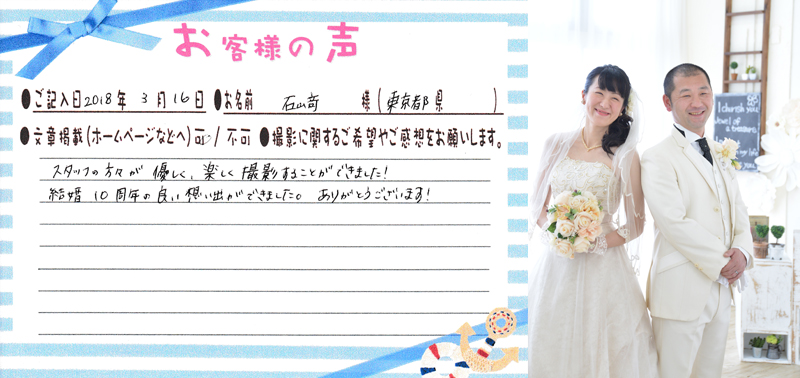 お客様の声
●ご記入日2018年 3月16日 ●お名前 石山 様(東京都県 )
●文章掲載(ホームページなどへ)可/不可 ●撮影に関するご希望やご感想をお願いします。
スタッフの方々が優しく、楽しく撮影することができました!
結婚10周年の良い想い出ができました。ありがとうございます!
I cherish you
Jewel of
a treasure